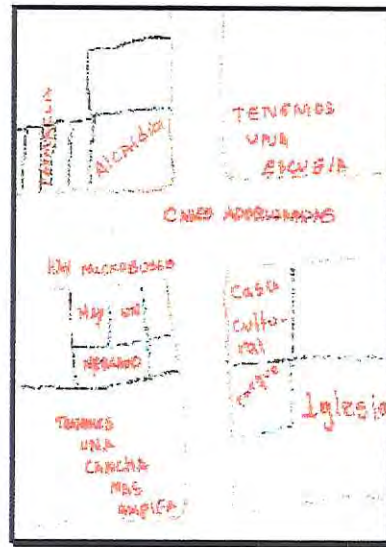 Alcaldía
TENEMOS
UNA
ESCUELA
CALLES ADOQUINADAS
HAY MICROBUSES
HAY UN
MERCADO
Casa
Cultu-
ral
Parque
Iglesia
TENEMOS
UNA
CANCHA
MAS
AMPLIA